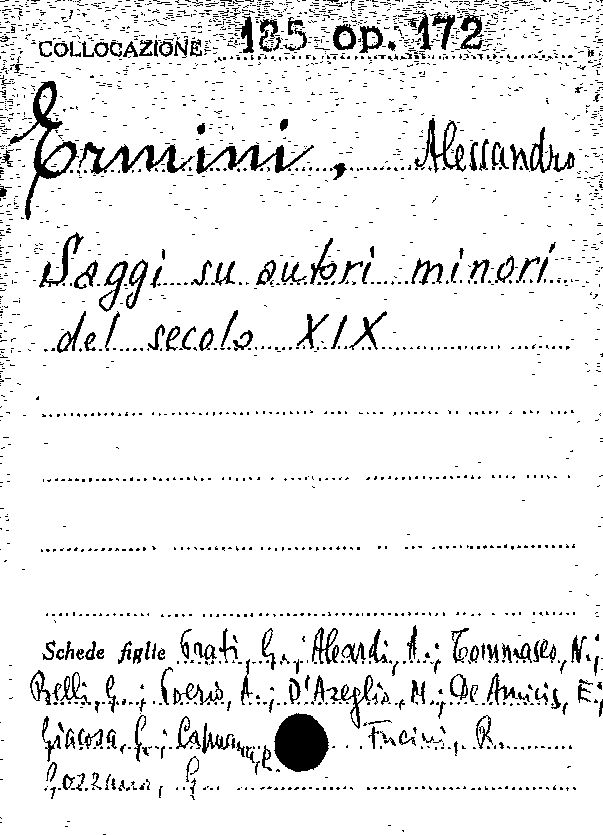 COLLOCAZIONE 185 op. 172
Ermini, Alessandro
Saggi su autori minori
del secolo XIX
Schede figlie Prati, G.; Aleardi, A.; Tommaseo, N.;
Belli, G.; Poerio, A.; D'Azeglio, M.; De Amicis, E.;
Giacosa, G.; Capuana, L. Fucini, R.
Gozzano, G.